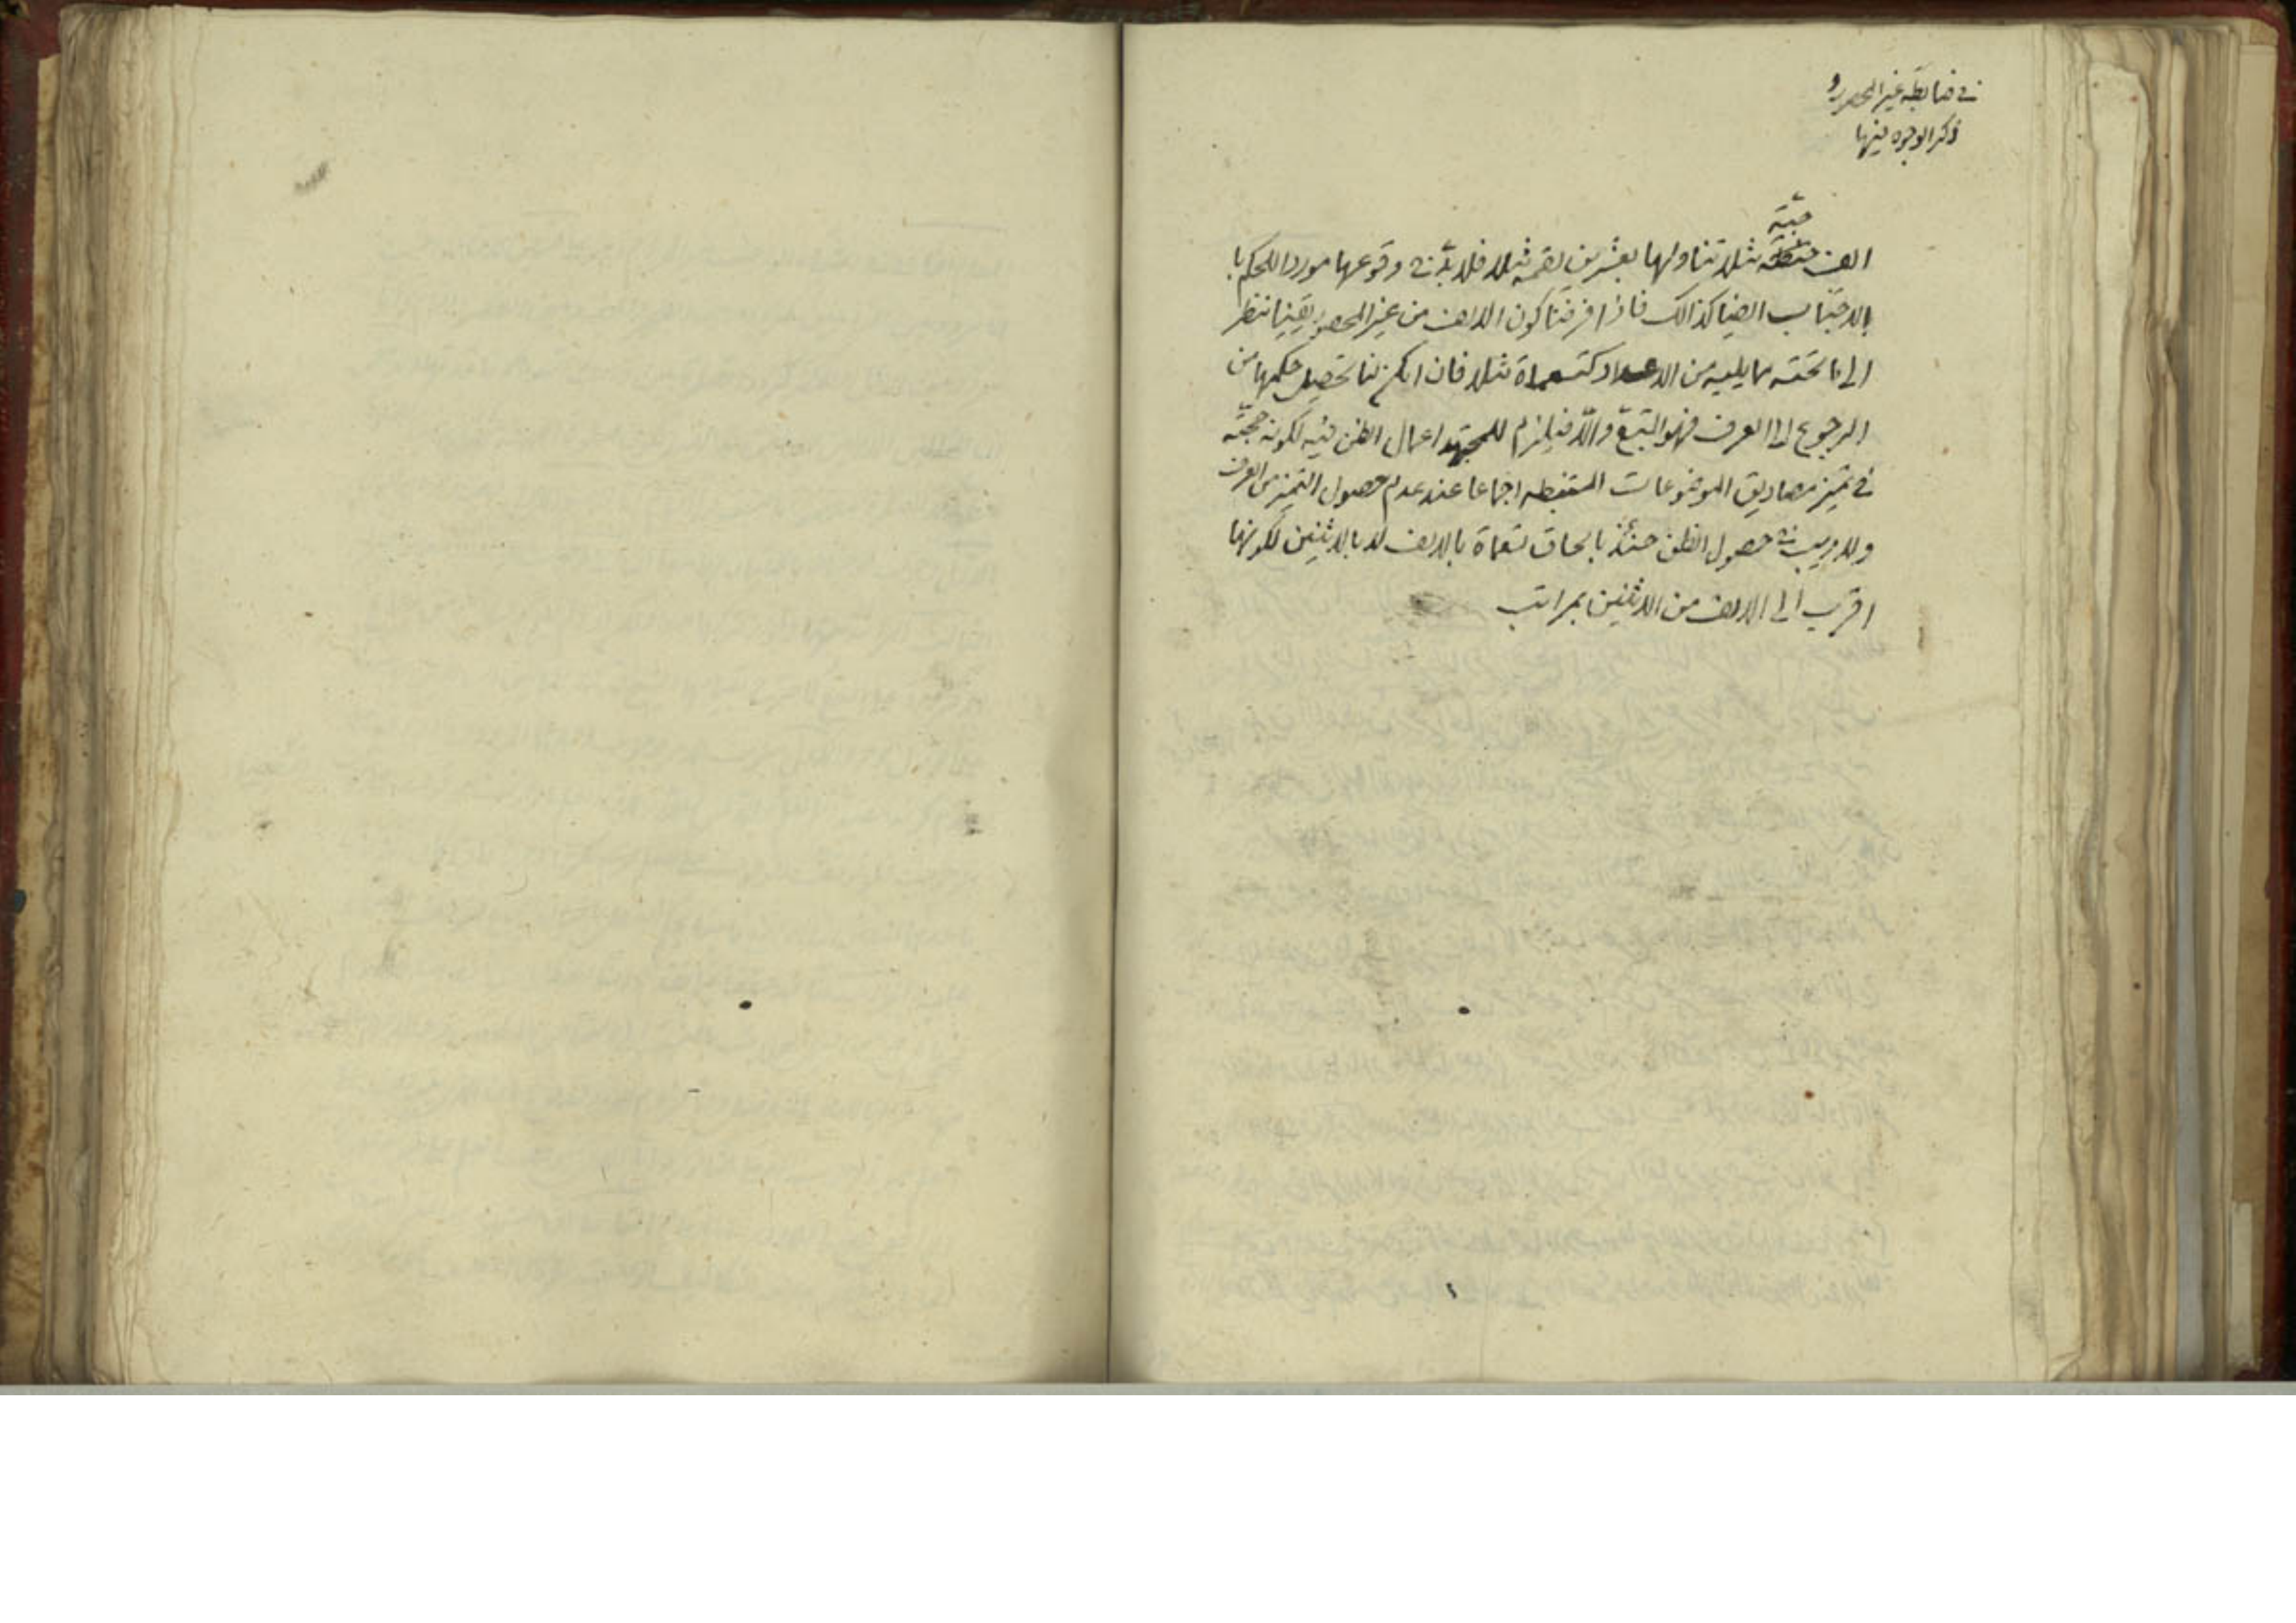 في ضابطة غير المحصور و
ذكر الوجوه فيها
حبّة
الف حنطة مثلا تناولها بعشرين لقمة مثلا فلا بدّ في وقوعها موردا للحكم با
بالاجتناب ايضا كذالك فاذا فرضنا كون الالف من غير المحصور يقينا ننظر
الى ما تحته مما يليه من الاعداد كتسعماة مثلا فان امكن لنا تحصيل حكمها من
الرجوع الى العرف فهو المتبع والّا فيلزم للمجتهد اعمال الظن فيه لكونه حجّة
في تميز مصاديق الموضوعات المستنبطه اجماعا عند عدم حصول التميز من العرف
ولا ريب في حصول الظن حينئذ بالحاق تسعماة بالالف لا بالاثنين لكونها
اقرب الى الالف من الاثنين بمراتب